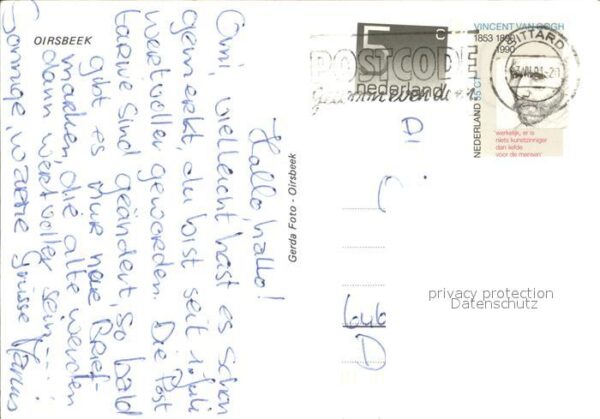 OIRSBEEK
Hallo, hallo!
Omi, vielleicht hast es schon
gemerkt, du bist seit 1. Juli
wertvoller geworden. Die Post
tarife sind geändert, so bald
gibt es nur neue Brief-
marken, die alte werden
dann wertvoller sein---!
Sonnige, warme grüsse
Gerda Foto - Oirsbeek
5 c
nederland
POSTCODE
SITTARD
VINCENT VAN GOGH
1853 1890
1990
NEDERLAND 55 CT
werkelijk, er is
niets kunstzinniger
dan liefde
voor de mensen
privacy protection
Datenschutz